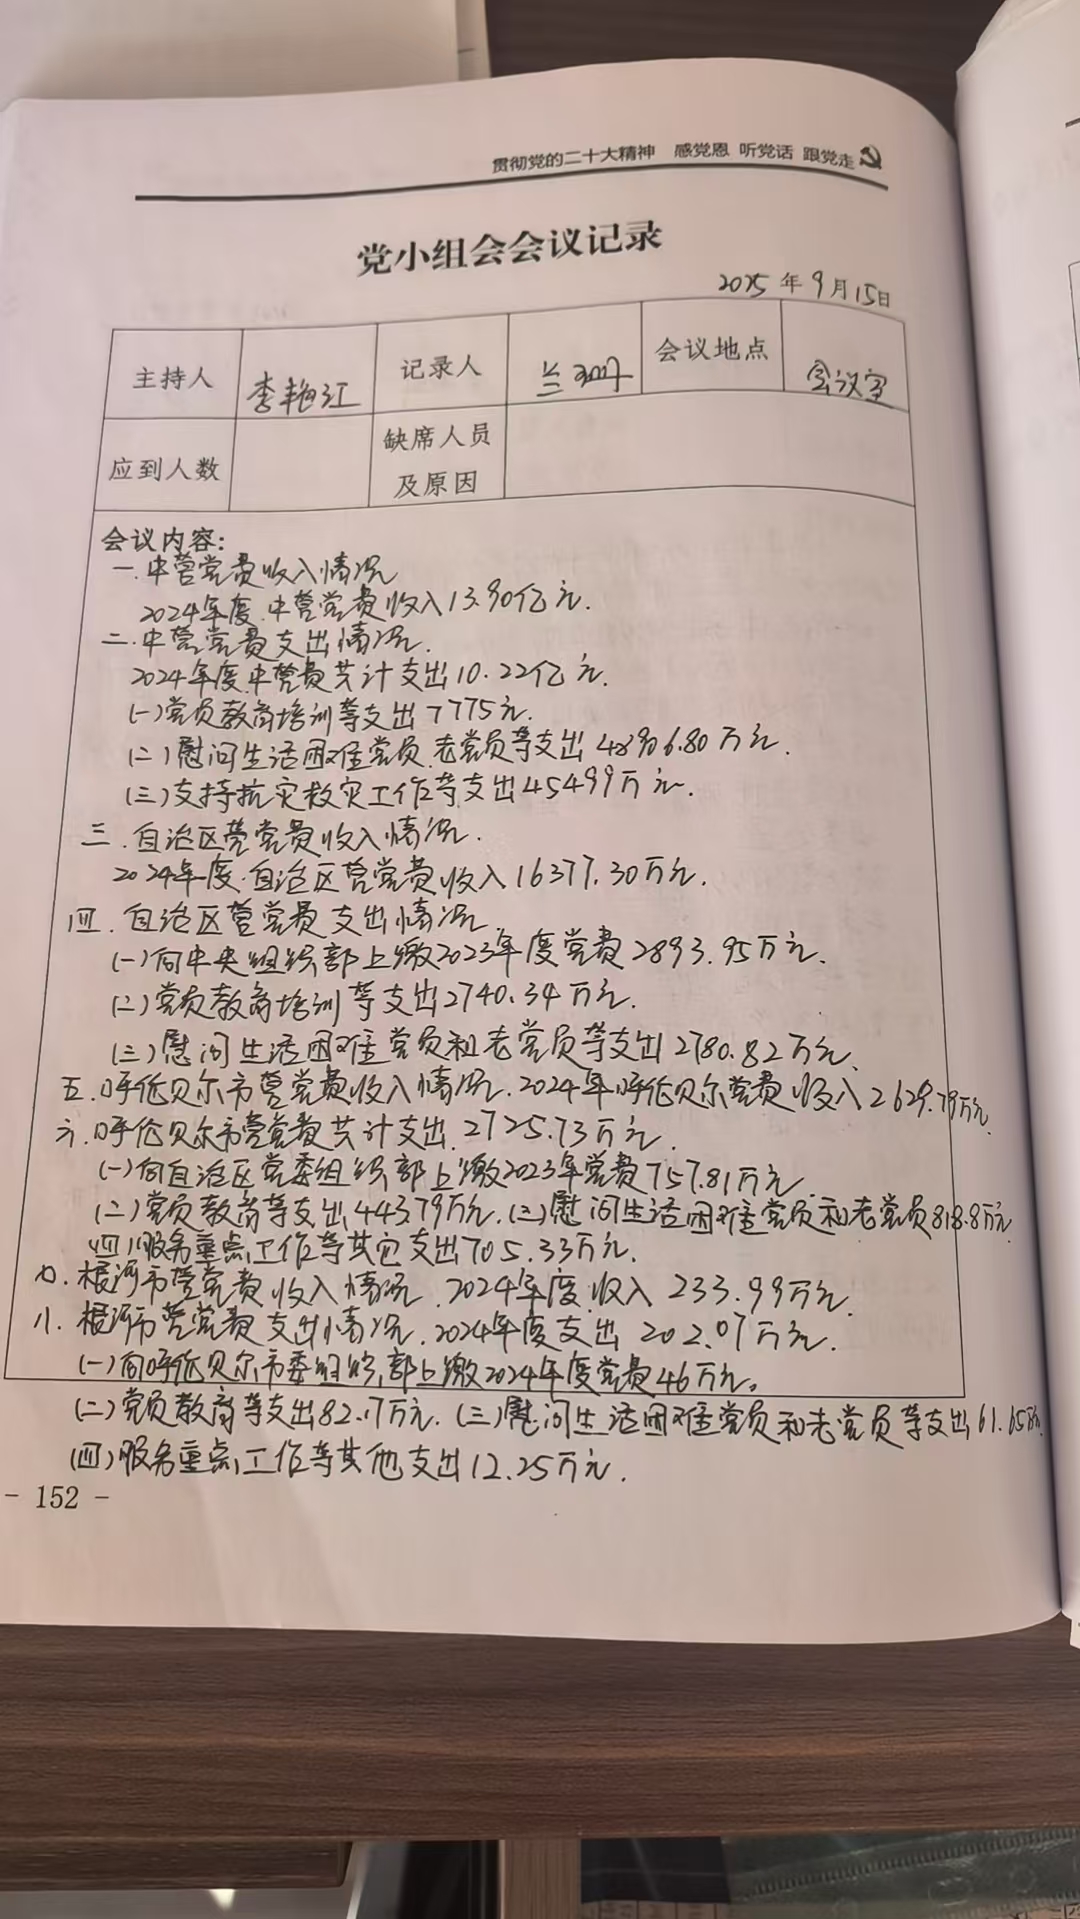 贯彻党的二十大精神 感党恩 听党话 跟党走
党小组会会议记录
2025年9月15日
主持人 李艳江 记录人 兰 会议地点 会议室
应到人数 缺席人员及原因
会议内容:
一.中管党费收入情况
2024年度.中管党费收入13.90亿元.
二.中管党费支出情况.
2024年度中管费共计支出10.22亿元.
(一)党员教育培训等支出7775元.
(二)慰问生活困难党员.老党员等支出 6.80万元.
(三)支持抗灾救灾工作等支出45499万元.
三.自治区管党费收入情况.
2024年度.自治区管党费收入16377.30万元.
四.自治区管党费支出情况
(一)向中央组织部上缴2023年度党费2893.95万元.
(二)党员教育培训等支出2740.34万元.
(三)慰问生活困难党员和老党员等支出2780.82万元.
五.呼伦贝尔市管党费收入情况.2024年呼伦贝尔党费收入2629.79万元.
六.呼伦贝尔市管党费共计支出.2725.73万元.
(一)向自治区党委组织部上缴2023年党费757.81万元
(二)党员教育等支出443.79万元.(三)慰问生活困难党员和老党员818.8万元
(四)服务重点工作等其它支出705.33万元.
七.根河市管党费收入情况.2024年度收入233.99万元.
八.根河市管党费支出情况.2024年度支出202.07万元.
(一)向呼伦贝尔市委组织部上缴2024年度党费46万元。
(二)党员教育等支出82.17万元.(三)慰问生活困难党员和老党员等支出61.65万元.
(四)服务重点工作等其他支出12.25万元.
- 152 -